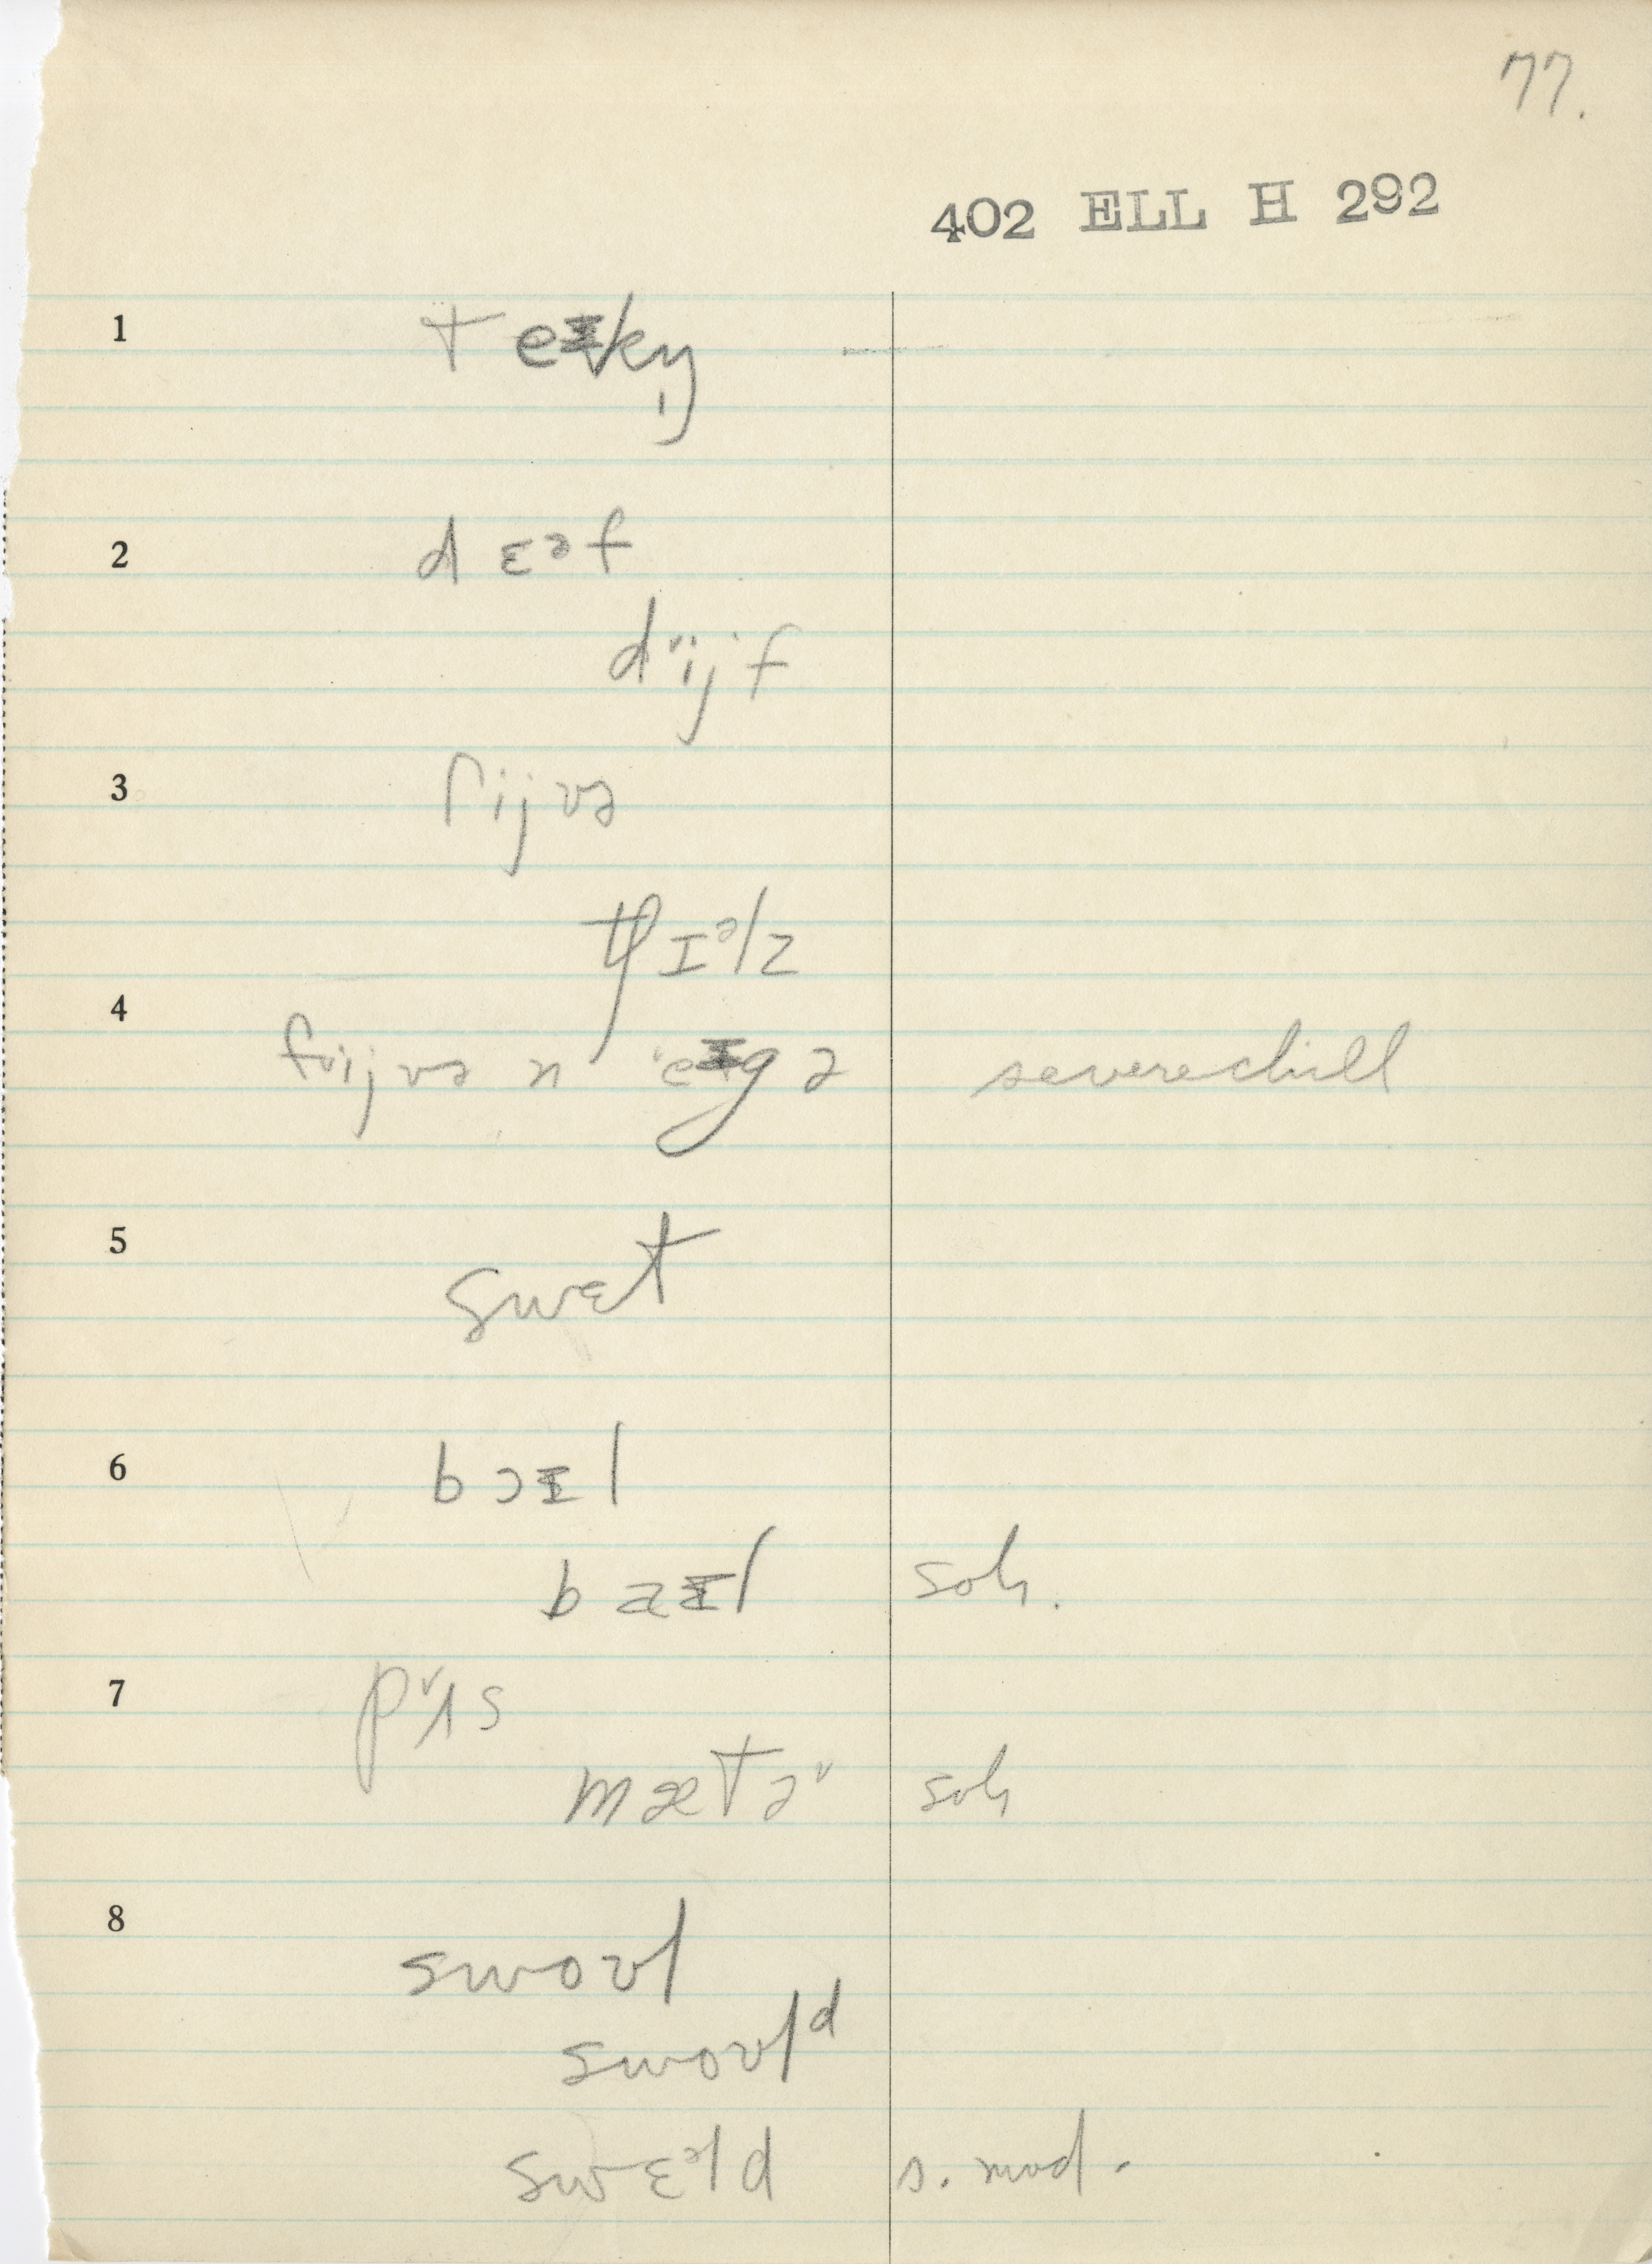 77.
402 ELL H 292
1 teɪkŋ̩
2 d ɛᵊf
dijf
3 fijvə
tʃɪᵊlz
4 fijvə n eɪgə severe chill
5 swɛt
6 bɔɪl
baɪl sol.
7 pʌs
mætɚ sol
8 swoʊl
swoʊlᵈ
swɛᵊld s. mod.